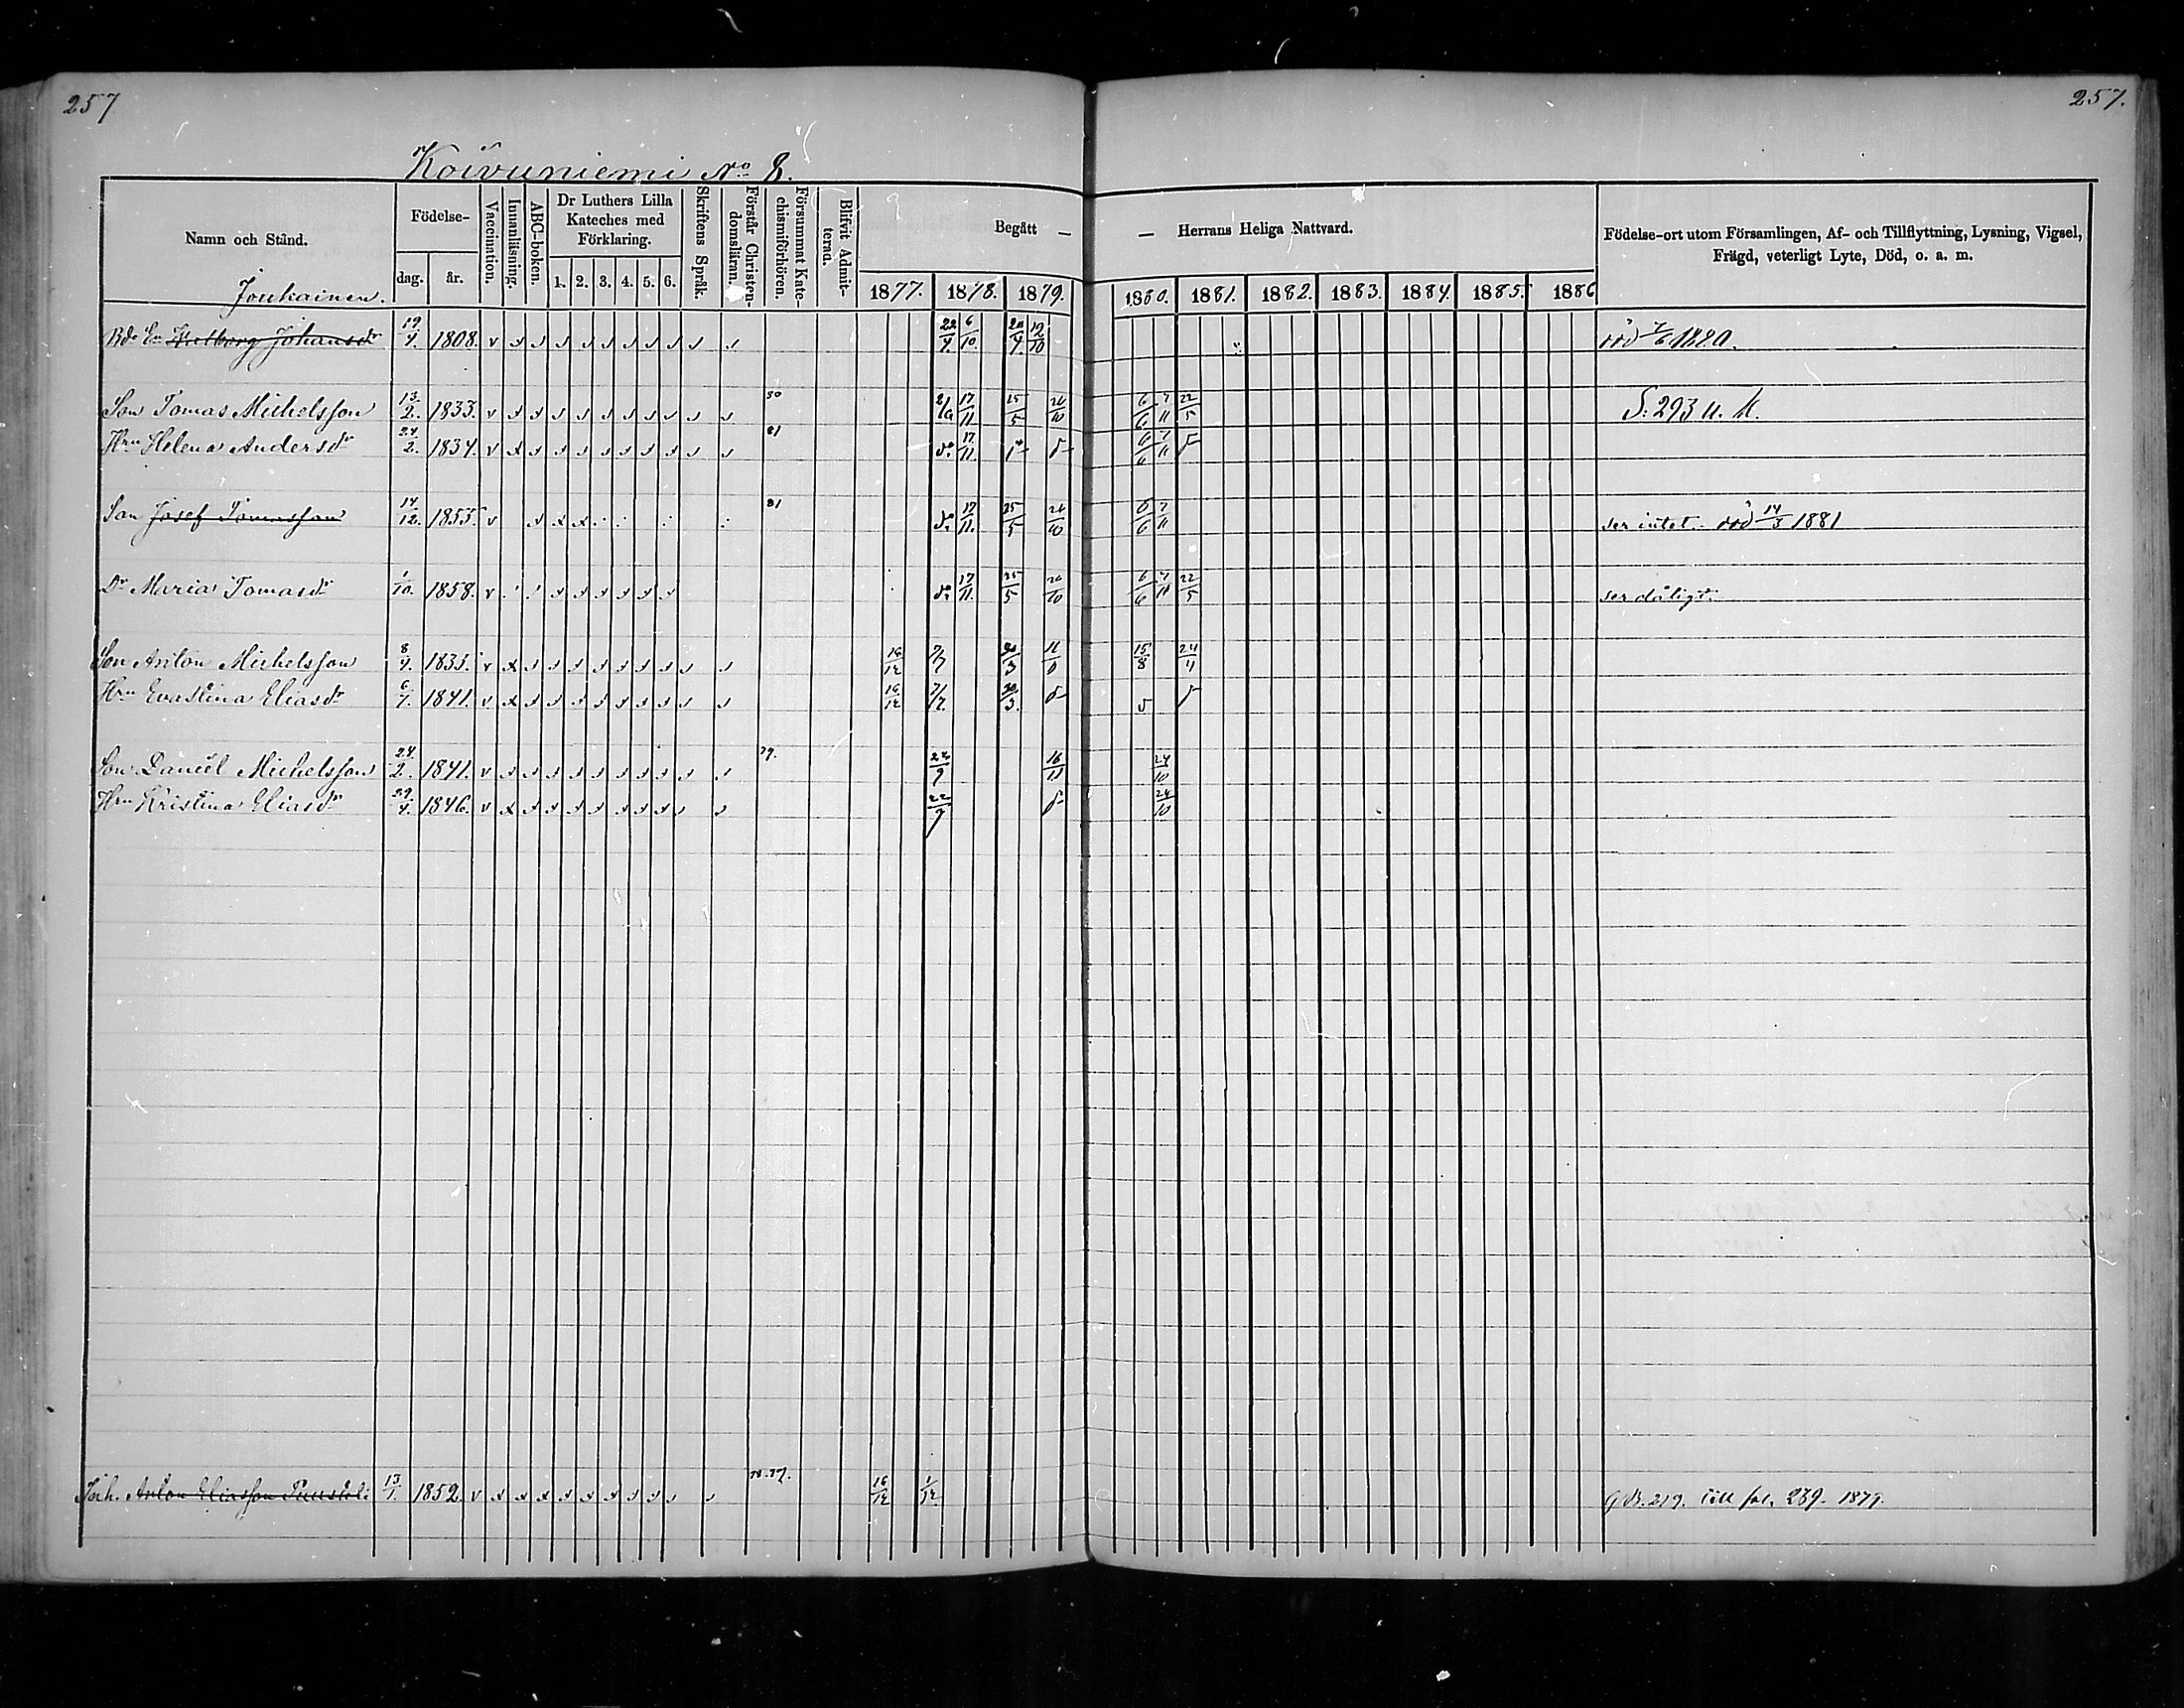 257 257.
Koivuniemi No 8.
Namn och Stånd. Födelse- dag. år. Vaccination. Innanläsning. ABC-boken. Dr Luthers Lilla Kateches med Förklaring. 1. 2. 3. 4. 5. 6. Skriftens Språk. Förstår Christendomsläran. Försummat Katechismiförhören. Blifvit Admitterad. Begått — — Herrans Heliga Nattvard. Födelse-ort utom Församlingen, Af- och Tillflyttning, Lysning, Vigsel, Frägd, veterligt Lyte, Död, o. a. m.
1877. 1878. 1879. 1880. 1881. 1882. 1883. 1884. 1885. 1886
Jouhainen.
Bde En Johansdr 19/4. 1808. 22/4. 6/10. 20/4. 12/10 död 1880.
Son Tomas Michelsson 13/2. 1833. 80 17/11 25/5 26/10 6/6 7/11 22/5 S: 293 u. K.
Hru Helena Andersdr 24/2. 1834. 81 do 17/11. 6/6 7/11
Son Josef Tomasson 14/12. 1855. 81 do 17/11. 25/5 26/10 6/6 7/11 ser intet. död 14/3 1881
Dr Maria Tomasdr 1/10. 1858. do 17/11. 25/5 26/10 6/6 7/11 22/5 ser dåligt.
Son Anton Michelsson 8/4. 1835. 16/12 7/7 30/3 15/8 24/4
Hru Evastina Eliasdr 6/7. 1841. 16/12 7/7. 30/3.
Son Daniel Michelsson 24/2. 1841. 79. 22/9 16/11 24/10
Hru Kristina Eliasdr 29/4. 1846. 22/9 24/10
Inh. Anton Eliasson 13/1. 1852. 16/12 1/12 G.B. 219. Till fol. 289. 1879.